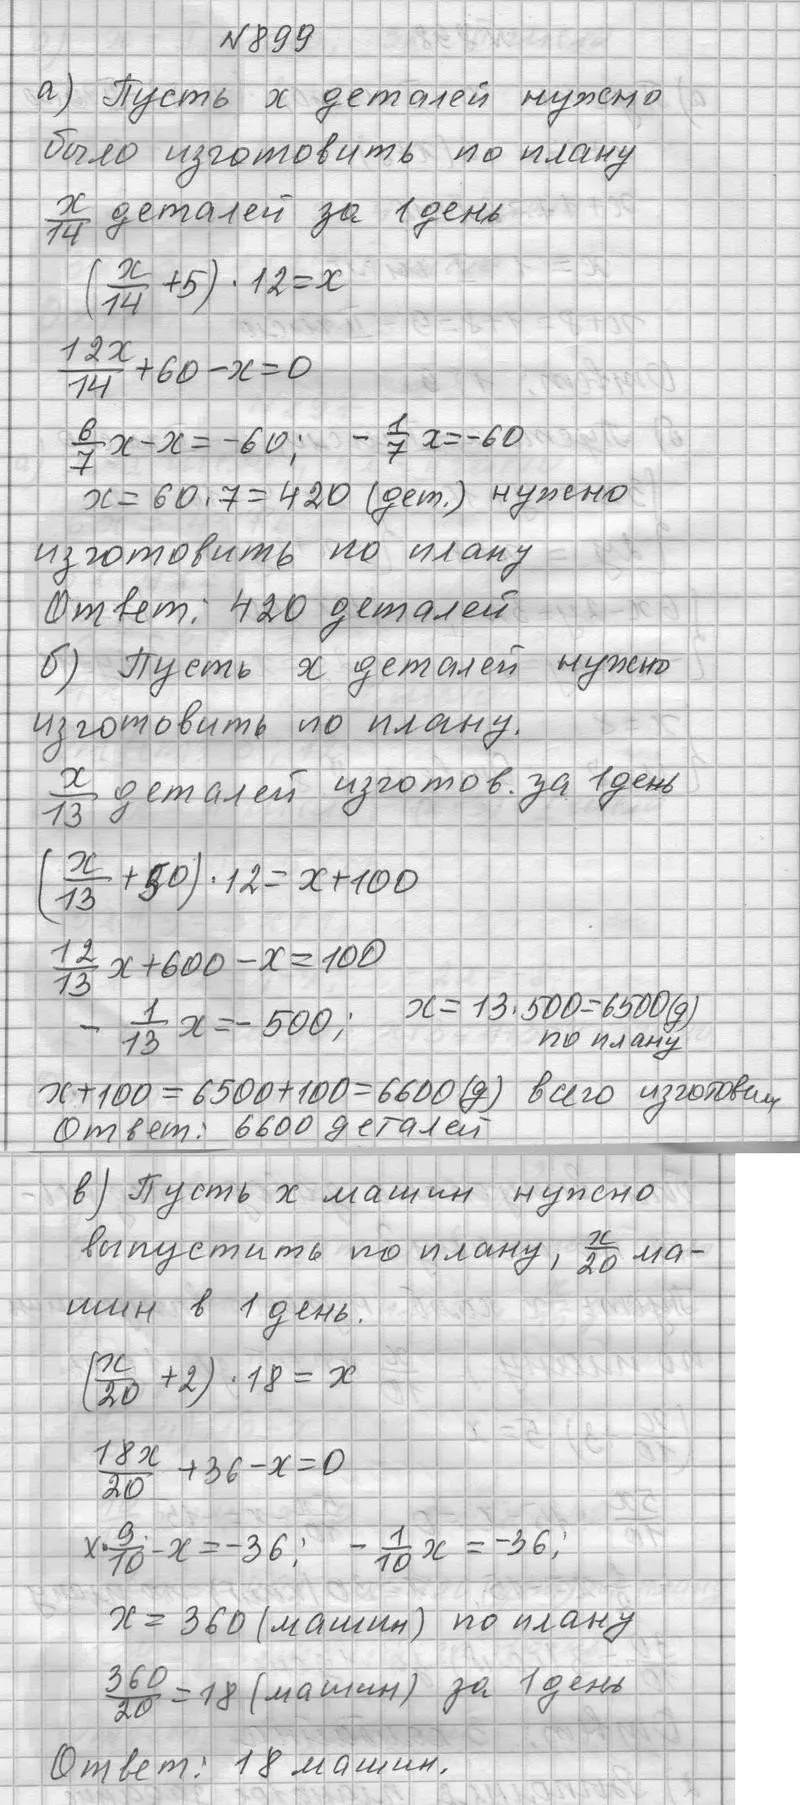 №899
а) Пусть x деталей нужно
было изготовить по плану
x/14 деталей за 1 день
(x/14 + 5) · 12 = x
12x/14 + 60 - x = 0
6/7 x - x = -60; - 1/7 x = -60
x = 60 · 7 = 420 (дет.) нужно
изготовить по плану
Ответ: 420 деталей
б) Пусть x деталей нужно
изготовить по плану.
x/13 деталей изготов. за 1 день
(x/13 + 50) · 12 = x + 100
12/13 x + 600 - x = 100
- 1/13 x = - 500; x = 13 · 500 = 6500 (д)
по плану
x + 100 = 6500 + 100 = 6600 (д) всего изготовим
Ответ: 6600 деталей
в) Пусть x машин нужно
выпустить по плану, x/20 ма-
шин в 1 день.
(x/20 + 2) · 18 = x
18x/20 + 36 - x = 0
x · 9/10 - x = -36; - 1/10 x = -36;
x = 360 (машин) по плану
360/20 = 18 (машин) за 1 день
Ответ: 18 машин.